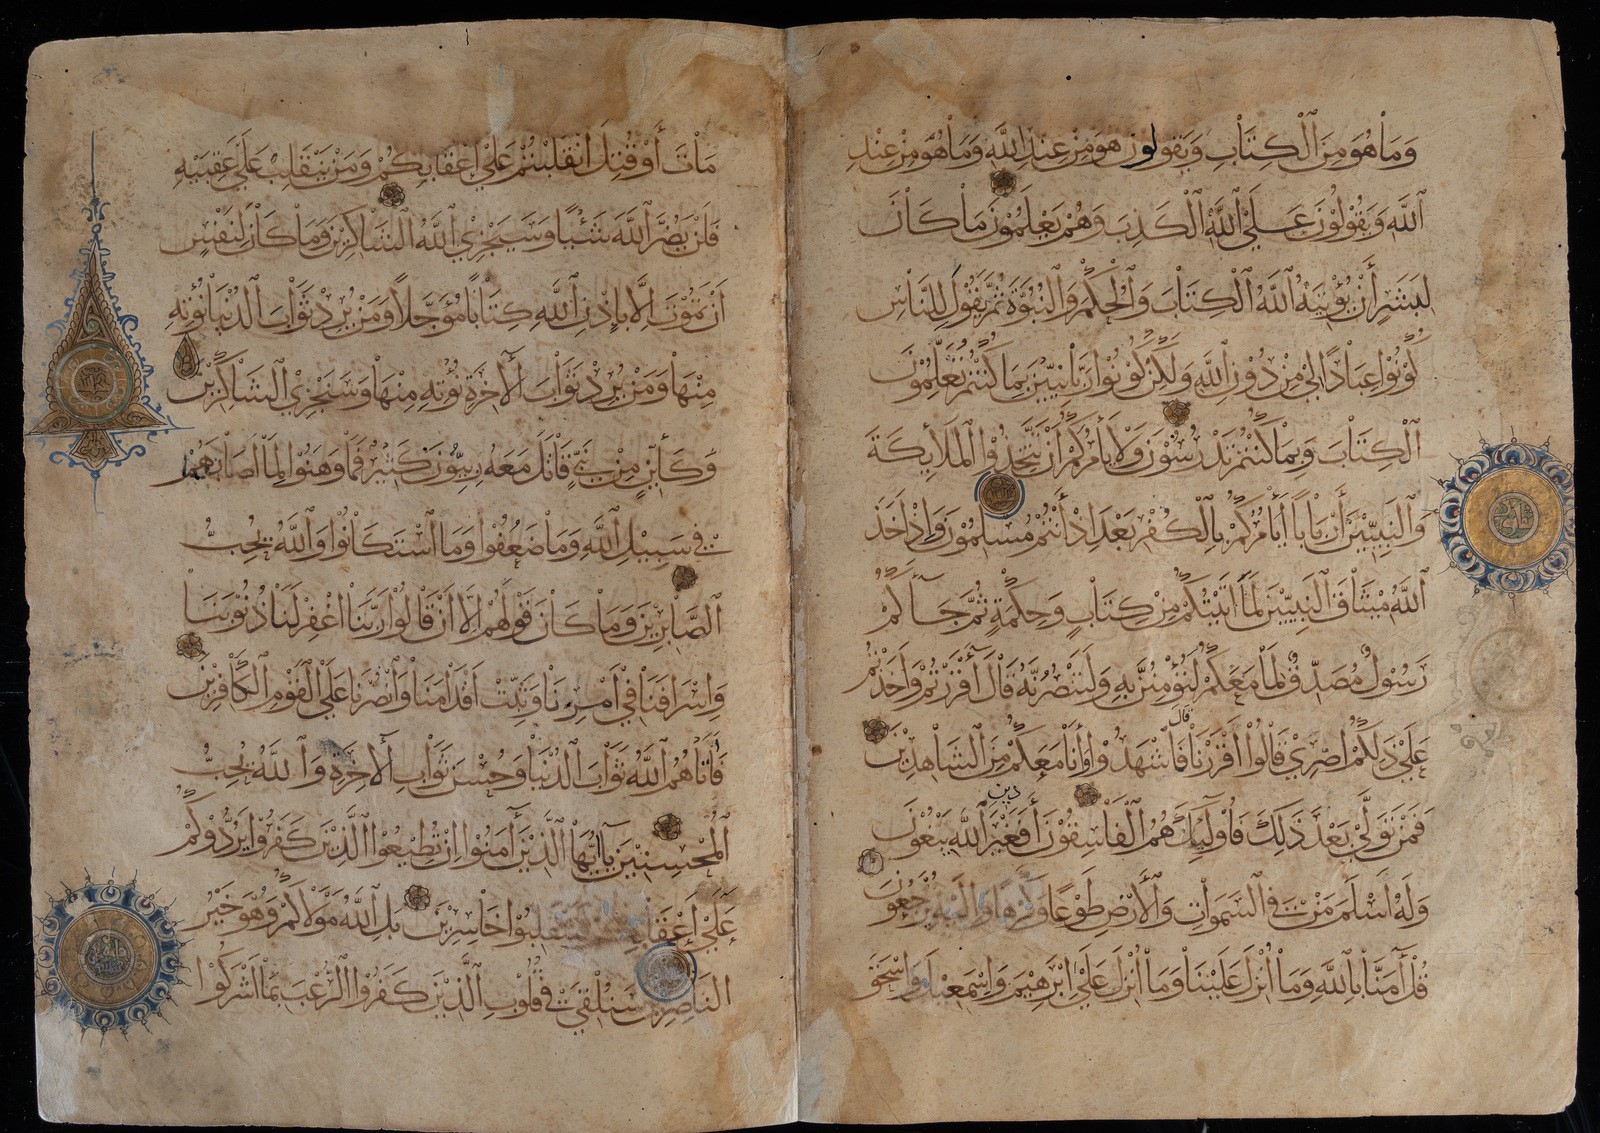 وَمَا هُوَ مِنَ الْكِتَابِ وَيَقُولُونَ هُوَ مِنْ عِنْدِ اللَّهِ وَمَا هُوَ مِنْ عِنْدِ
اللَّهِ وَيَقُولُونَ عَلَى اللَّهِ الْكَذِبَ وَهُمْ يَعْلَمُونَ مَا كَانَ
لِبَشَرٍ أَنْ يُؤْتِيَهُ اللَّهُ الْكِتَابَ وَالْحُكْمَ وَالنُّبُوَّةَ ثُمَّ يَقُولَ لِلنَّاسِ
كُونُوا عِبَادًا لِي مِنْ دُونِ اللَّهِ وَلَكِنْ كُونُوا رَبَّانِيِّينَ بِمَا كُنْتُمْ تُعَلِّمُونَ
الْكِتَابَ وَبِمَا كُنْتُمْ تَدْرُسُونَ وَلَا يَأْمُرَكُمْ أَنْ تَتَّخِذُوا الْمَلَائِكَةَ
وَالنَّبِيِّينَ أَرْبَابًا أَيَأْمُرُكُمْ بِالْكُفْرِ بَعْدَ إِذْ أَنْتُمْ مُسْلِمُونَ وَإِذْ أَخَذَ
اللَّهُ مِيثَاقَ النَّبِيِّينَ لَمَا آتَيْتُكُمْ مِنْ كِتَابٍ وَحِكْمَةٍ ثُمَّ جَاءَكُمْ
رَسُولٌ مُصَدِّقٌ لِمَا مَعَكُمْ لَتُؤْمِنُنَّ بِهِ وَلَتَنْصُرُنَّهُ قَالَ أَأَقْرَرْتُمْ وَأَخَذْتُمْ
عَلَى ذَلِكُمْ إِصْرِي قَالُوا أَقْرَرْنَا قَالَ فَاشْهَدُوا وَأَنَا مَعَكُمْ مِنَ الشَّاهِدِينَ
فَمَنْ تَوَلَّى بَعْدَ ذَلِكَ فَأُولَئِكَ هُمُ الْفَاسِقُونَ أَفَغَيْرَ دين اللَّهِ يَبْغُونَ
وَلَهُ أَسْلَمَ مَنْ فِي السَّمَوَاتِ وَالْأَرْضِ طَوْعًا وَكَرْهًا وَإِلَيْهِ يُرْجَعُونَ
قُلْ آمَنَّا بِاللَّهِ وَمَا أُنْزِلَ عَلَيْنَا وَمَا أُنْزِلَ عَلَى إِبْرَهِيمَ وَإِسْمَعِيلَ وَإِسْحَقَ
مَاتَ أَوْ قُتِلَ انْقَلَبْتُمْ عَلَى أَعْقَابِكُمْ وَمَنْ يَنْقَلِبْ عَلَى عَقِبَيْهِ
فَلَنْ يَضُرَّ اللَّهَ شَيْئًا وَسَيَجْزِي اللَّهُ الشَّاكِرِينَ وَمَا كَانَ لِنَفْسٍ
أَنْ تَمُوتَ إِلَّا بِإِذْنِ اللَّهِ كِتَابًا مُؤَجَّلًا وَمَنْ يُرِدْ ثَوَابَ الدُّنْيَا نُؤْتِهِ
مِنْهَا وَمَنْ يُرِدْ ثَوَابَ الْآخِرَةِ نُؤْتِهِ مِنْهَا وَسَنَجْزِي الشَّاكِرِينَ
وَكَأَيِّنْ مِنْ نَبِيٍّ قَاتَلَ مَعَهُ رِبِّيُّونَ كَثِيرٌ فَمَا وَهَنُوا لِمَا أَصَابَهُمْ
فِي سَبِيلِ اللَّهِ وَمَا ضَعُفُوا وَمَا اسْتَكَانُوا وَاللَّهُ يُحِبُّ
الصَّابِرِينَ وَمَا كَانَ قَوْلَهُمْ إِلَّا أَنْ قَالُوا رَبَّنَا اغْفِرْ لَنَا ذُنُوبَنَا
وَإِسْرَافَنَا فِي أَمْرِنَا وَثَبِّتْ أَقْدَامَنَا وَانْصُرْنَا عَلَى الْقَوْمِ الْكَافِرِينَ
فَآتَاهُمُ اللَّهُ ثَوَابَ الدُّنْيَا وَحُسْنَ ثَوَابِ الْآخِرَةِ وَاللَّهُ يُحِبُّ
الْمُحْسِنِينَ يَا أَيُّهَا الَّذِينَ آمَنُوا إِنْ تُطِيعُوا الَّذِينَ كَفَرُوا يَرُدُّوكُمْ
عَلَى أَعْقَابِكُمْ فَتَنْقَلِبُوا خَاسِرِينَ بَلِ اللَّهُ مَوْلَاكُمْ وَهُوَ خَيْرُ
النَّاصِرِينَ سَنُلْقِي فِي قُلُوبِ الَّذِينَ كَفَرُوا الرُّعْبَ بِمَا أَشْرَكُوا